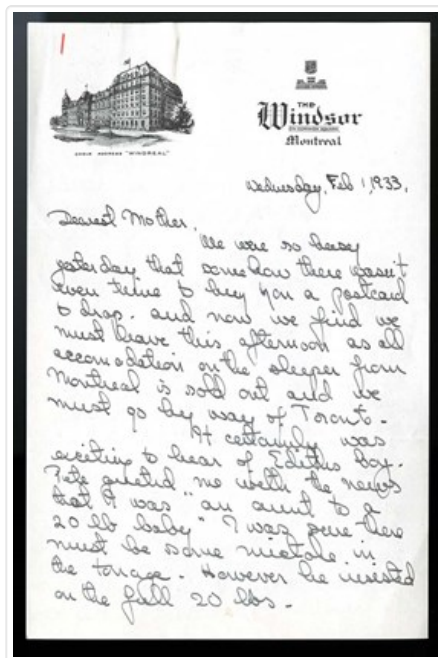 CABLE ADDRESS "WINDREAL"
THE
Windsor
ON DOMINION SQUARE
Montreal
Wednesday, Feb 1, 1933.
Dearest Mother,
We were so busy
yesterday that somehow there wasn't
even time to buy you a postcard
to drop. and now we find we
must leave this afternoon as all
accomodation on the sleeper from
Montreal is sold out and we
must go by way of Toront-
It certainly was
exciting to hear of Edith's boy.
Pete greeted me with the news
that it was "an aunt to a
20 lb baby" I was sure there
must be some mistake in
the tonage. However he insisted
on the full 20 lbs.